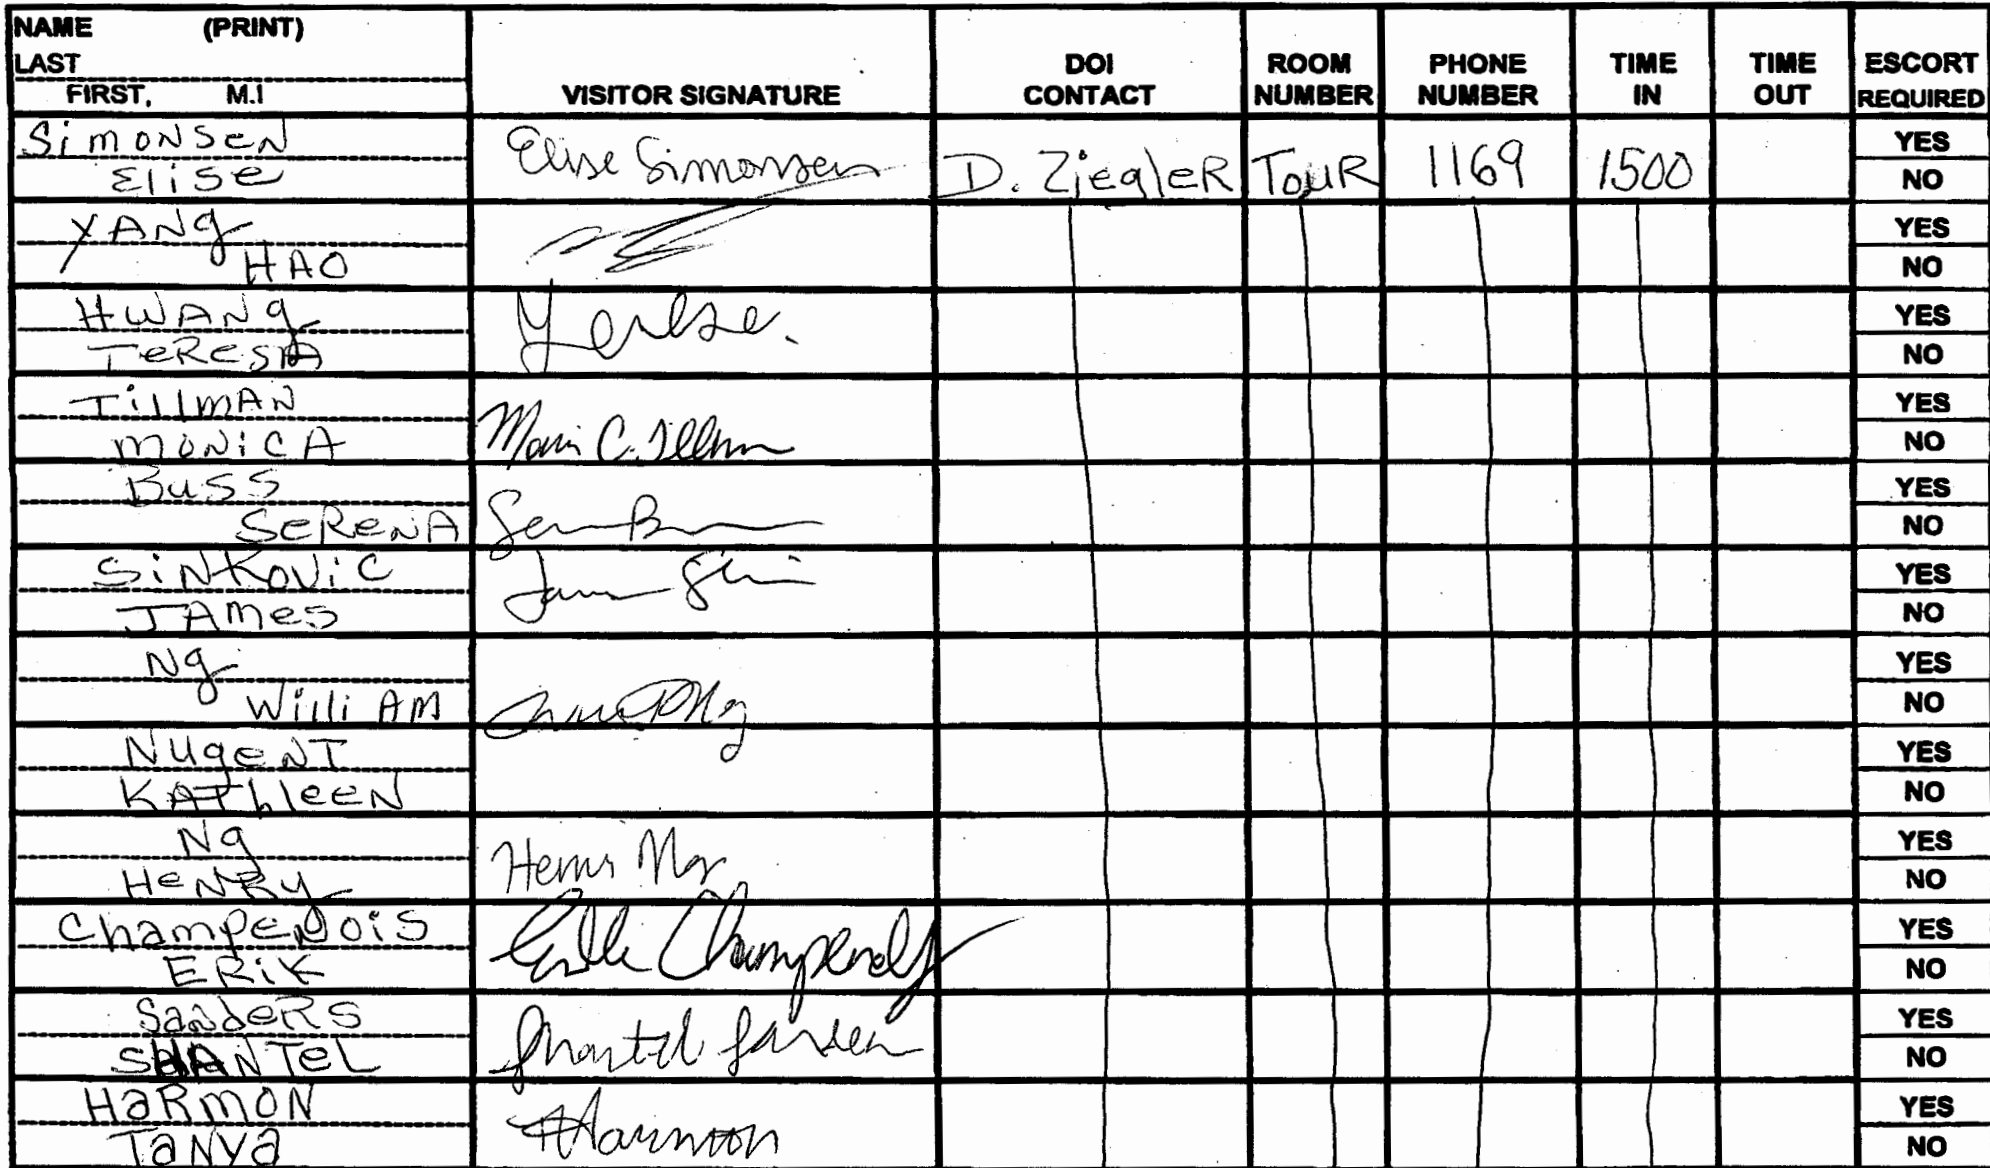 NAME (PRINT)
LAST
FIRST, M.I
VISITOR SIGNATURE
DOI CONTACT
ROOM NUMBER
PHONE NUMBER
TIME IN
TIME OUT
ESCORT REQUIRED
SiMONSEN
Elise
Elise Simonsen
D. ZieglER
TOUR
1169
1500
YES
NO
YANg
HAO
YES
NO
HWANg
TeResA
YES
NO
TillMAN
MONiCA
YES
NO
BUSS
SeReNA
YES
NO
SiNKoviC
JAMes
YES
NO
Ng
WilliAM
YES
NO
NUgeNT
KAThleeN
YES
NO
Ng
HeNRy
YES
NO
ChampENOiS
ERiK
YES
NO
SaNdeRS
SHANTeL
YES
NO
HaRMON
TaNYa
THarmon
YES
NO